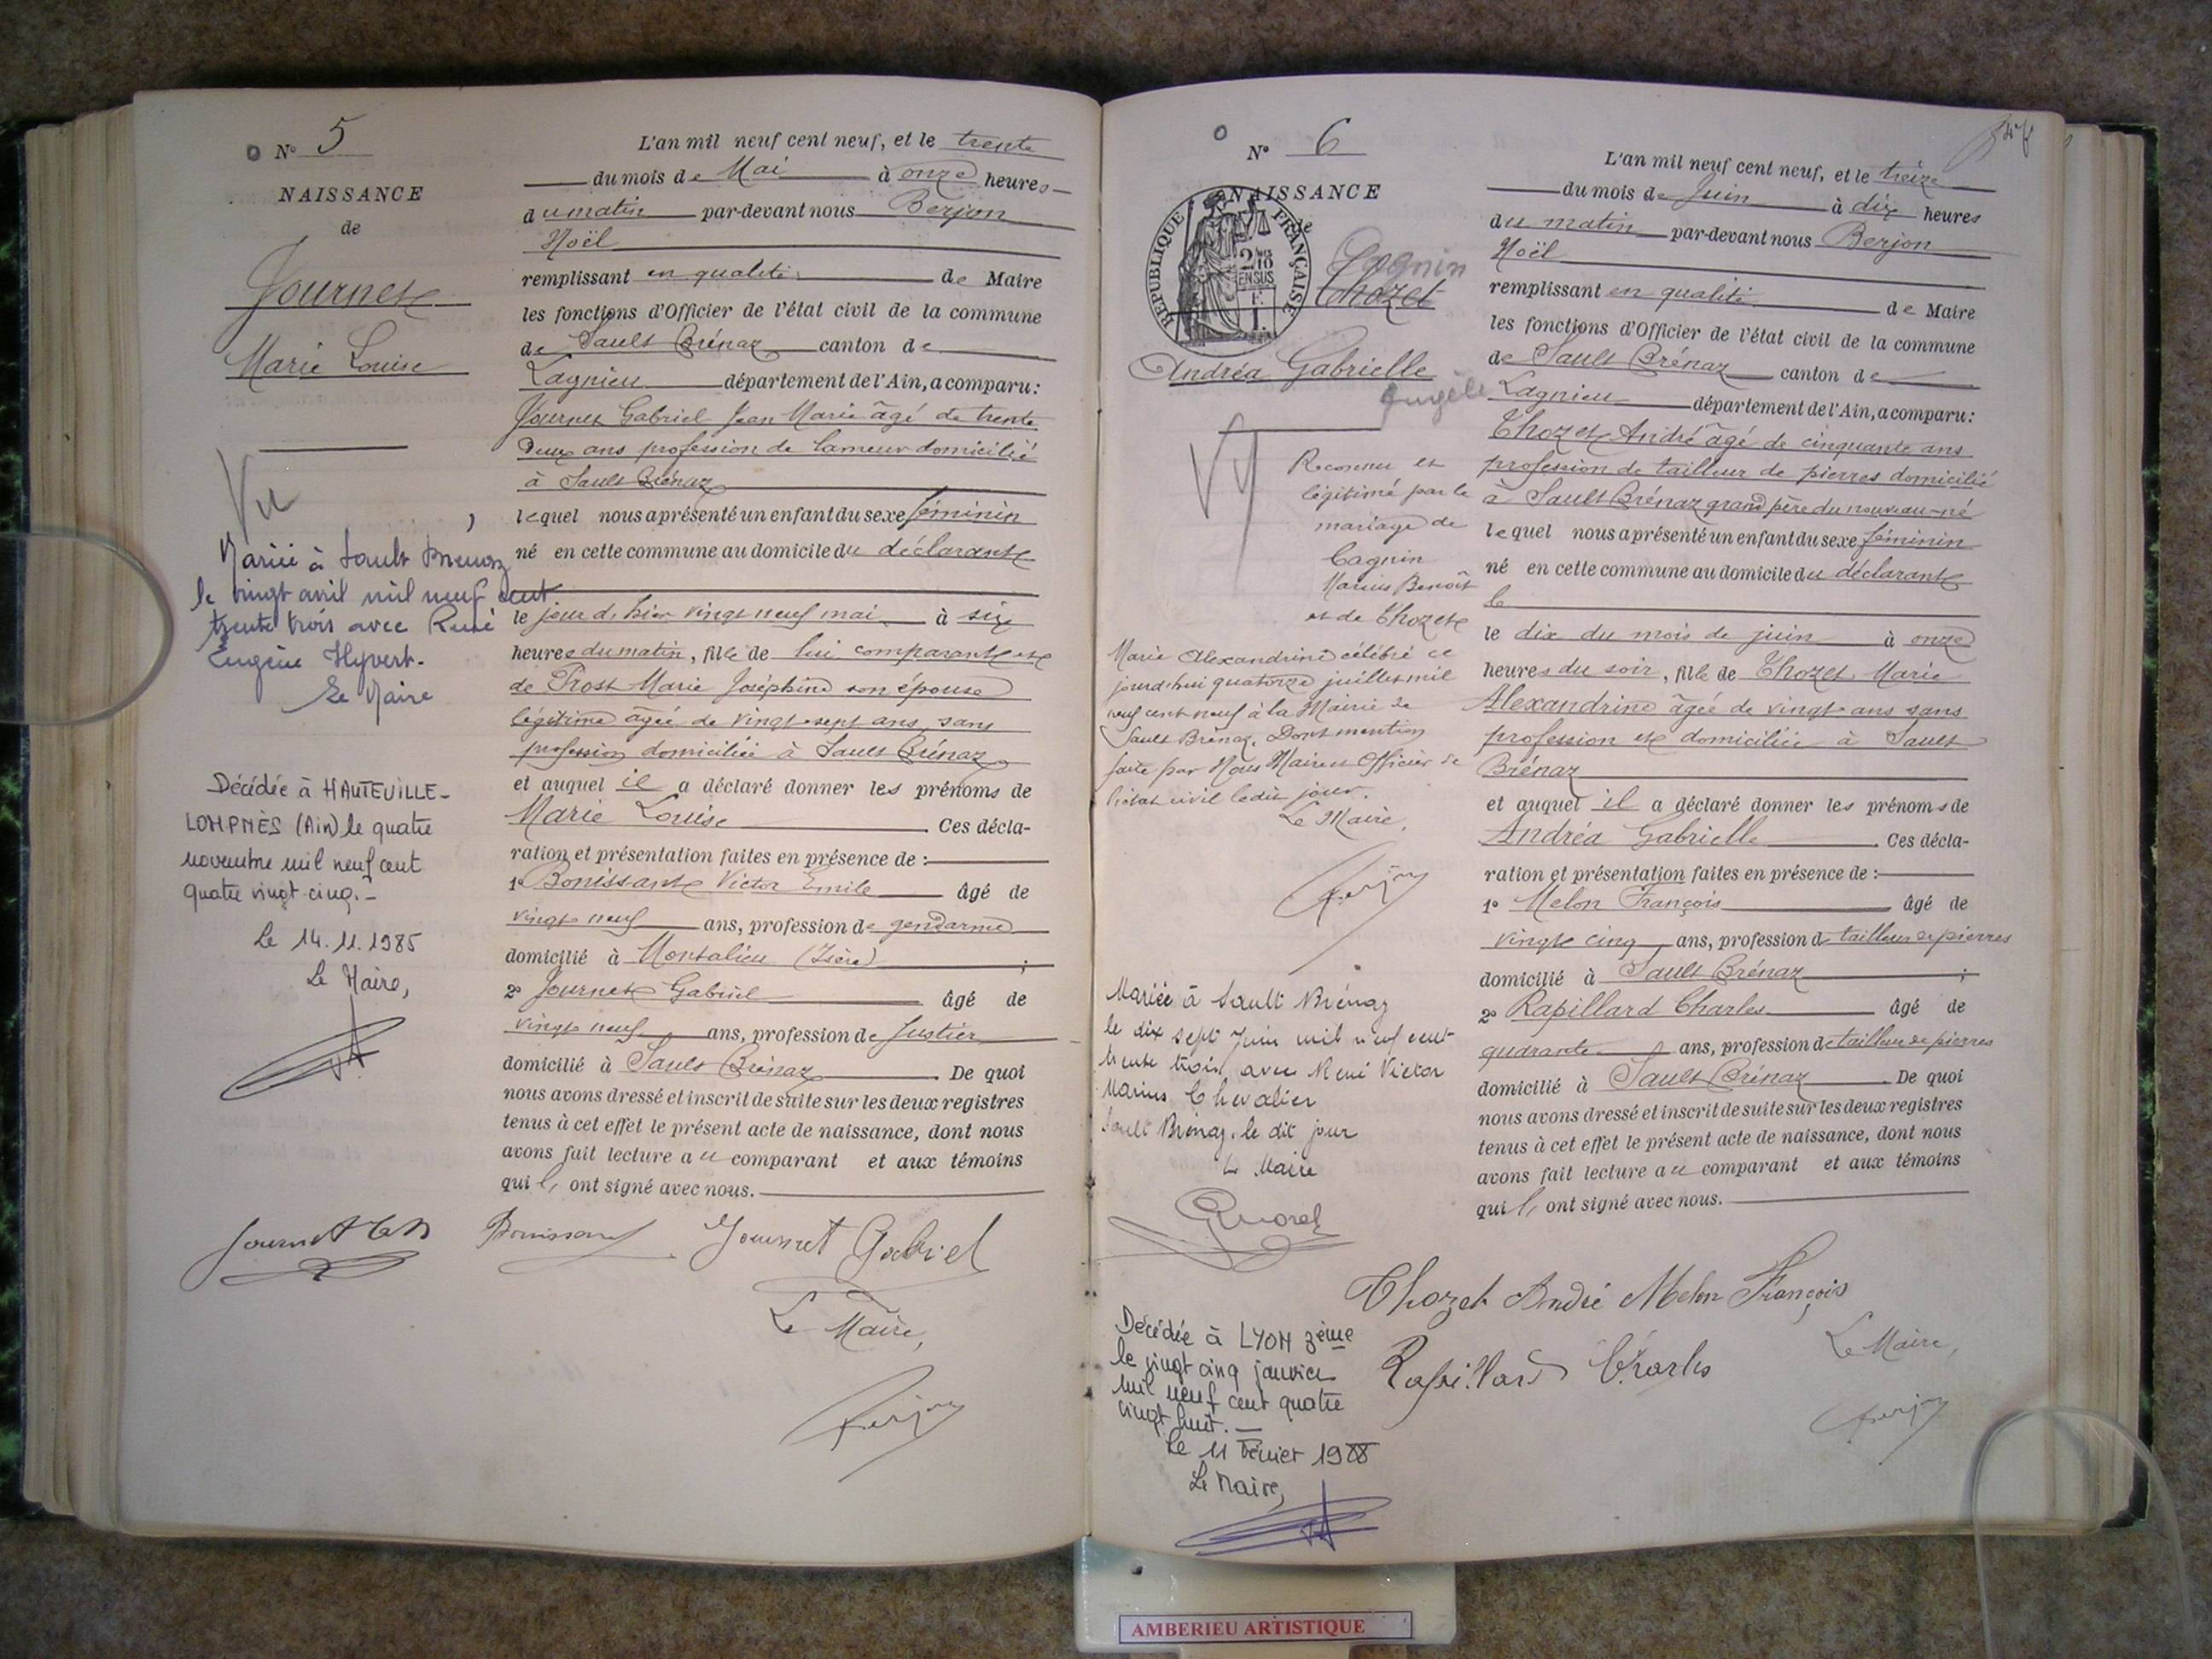 N° 5
NAISSANCE
de
Journet
Marie Louise
Vu
Mariée à Sault Brénaz
le vingt avril mil neuf cent
trente trois avec René
Eugène Hyvert.
Le Maire
Décédée à HAUTEVILLE-
LOMPNÈS (Ain) le quatre
novembre mil neuf cent
quatre vingt cinq.-
Le 14.11.1985
Le Maire,
L'an mil neuf cent neuf, et le trente
du mois de Mai à onze heures
du matin par-devant nous Berjon
Noël
remplissant en qualité de Maire
les fonctions d'Officier de l'état civil de la commune
de Sault Brénaz canton de
Lagnieu département de l'Ain, a comparu:
Journet Gabriel Jean Marie âgé de trente
Deux ans profession de lameur domicilié
à Sault Brénaz
lequel nous a présenté un enfant du sexe féminin
né en cette commune au domicile du déclarant
le jour d'hier vingt neuf mai à six
heures du matin, fille de lui comparant et
de Prost Marie Joséphine son épouse
légitime âgée de vingt sept ans, sans
profession domiciliée à Sault Brénaz
et auquel il a déclaré donner les prénoms de
Marie Louise Ces décla-
ration et présentation faites en présence de :
1° Bonissant Victor Emile âgé de
vingt neuf ans, profession de gendarme
domicilié à Montalieu (Isère) ;
2° Journet Gabriel âgé de
vingt neuf ans, profession de Justier
domicilié à Sault Brénaz. De quoi
nous avons dressé et inscrit de suite sur les deux registres
tenus à cet effet le présent acte de naissance, dont nous
avons fait lecture au comparant et aux témoins
qui l, ont signé avec nous.
Journet Bonissant Journet Gabriel
Le Maire,
Berjon
N° 6
NAISSANCE
de
REPUBLIQUE FRANÇAISE
2/10
EN SUS
Cagnin
Thozet
Andréa Gabrielle
Angèle
Vu
Reconnu et
légitimé par le
mariage de
Cagnin
Marius Benoît
et de Thozet
Marie Alexandrine célébré ce
jourd'hui quatorze juillet mil
neuf cent neuf à la Mairie de
Sault Brénaz. Dont mention
faite par Nous Maire et Officier de
l'état civil ledit jour.
Le Maire,
Berjon
Mariée à Sault Brénaz
le dix sept Juin mil neuf cent
trente trois, avec René Victor
Marius Chevalier
Sault Brénaz, le dit jour
Le Maire
Décédée à LYON 3ème
le vingt cinq janvier
mil neuf cent quatre
vingt huit.-
Le 11 Février 1988
Le Maire,
L'an mil neuf cent neuf, et le treize
du mois de Juin à dix heures
du matin par-devant nous Berjon
Noël
remplissant en qualité de Maire
les fonctions d'Officier de l'état civil de la commune
de Sault Brénaz canton de
Lagnieu département de l'Ain, a comparu:
Thozet André âgé de cinquante ans
profession de tailleur de pierres domicilié
à Sault Brénaz grand père du nouveau-né
lequel nous a présenté un enfant du sexe féminin
né en cette commune au domicile du déclarant
le
le dix du mois de juin à onze
heures du soir, fille de Thozet Marie
Alexandrine âgée de vingt ans sans
profession et domiciliée à Sault
Brénaz
et auquel il a déclaré donner les prénoms de
Andréa Gabrielle. Ces décla-
ration et présentation faites en présence de :
1° Melon François âgé de
vingt cinq ans, profession de tailleur de pierres
domicilié à Sault Brénaz ;
2° Rapillard Charles âgé de
quarante ans, profession de tailleur de pierres
domicilié à Sault Brénaz. De quoi
nous avons dressé et inscrit de suite sur les deux registres
tenus à cet effet le présent acte de naissance, dont nous
avons fait lecture au comparant et aux témoins
qui l, ont signé avec nous.
Thozet André Melon François
Rapillard Charles
Le Maire,
Berjon
AMBERIEU ARTISTIQUE